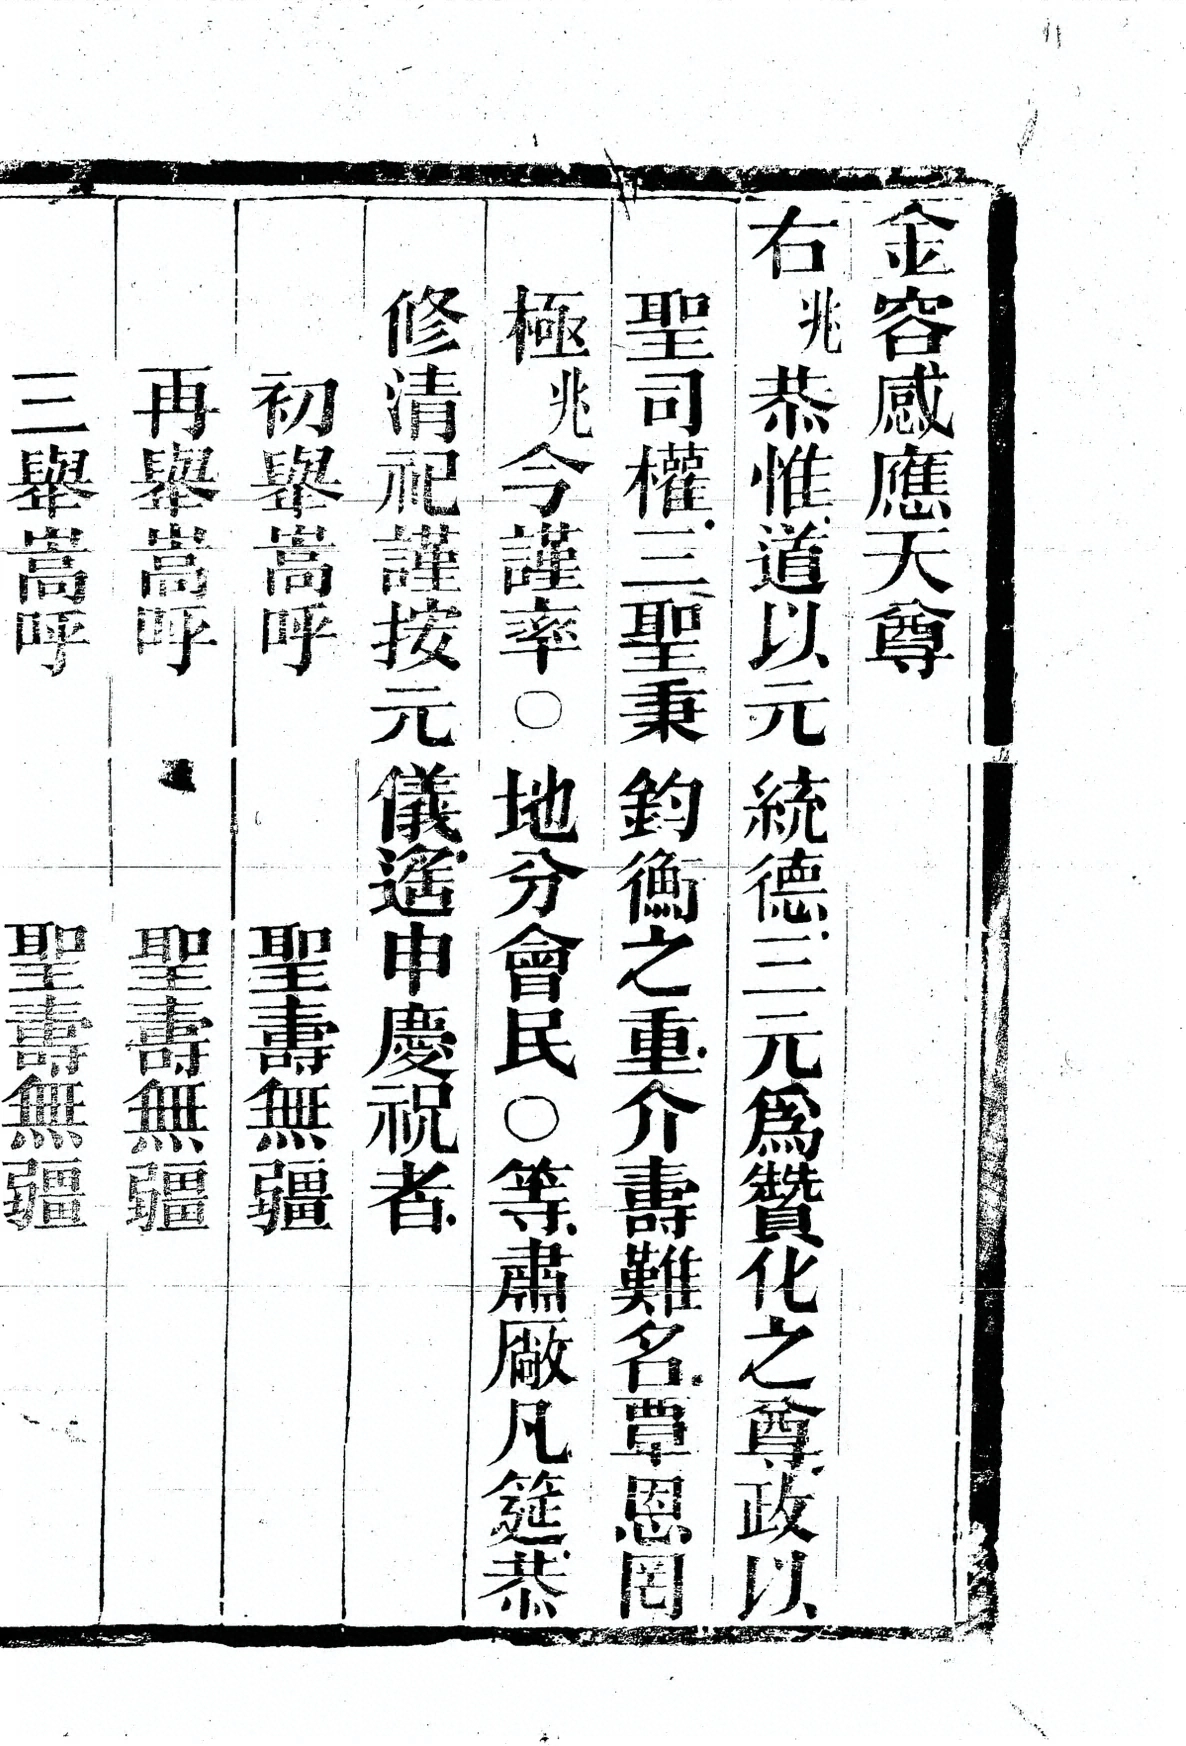 金容感應天尊
右兆恭惟道以元統德三元爲贊化之尊政以
聖司權三聖秉鈞衡之重介壽難名覃恩罔
極兆今謹率○地分會民○等肅厰凡筵恭
修清祀謹按元儀遙申慶祝者
初舉嵩呼 聖壽無疆
再舉嵩呼 聖壽無疆
三舉嵩呼 聖壽無疆